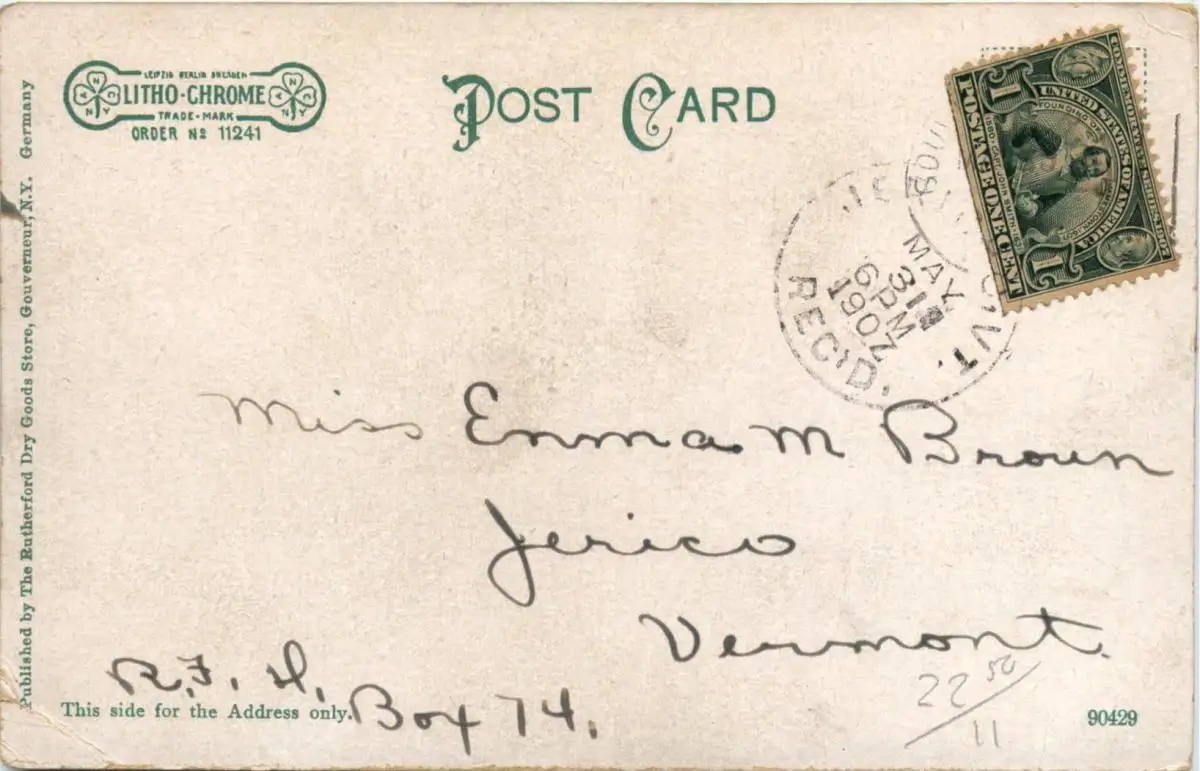 LEIPZIG BERLIN DRESDEN
LITHO-CHROME
TRADE-MARK
ORDER No 11241
N Y G
N Y G
POST CARD
UNITED STATES OF AMERICA
FOUNDING OF JAMESTOWN 1607
CAPT. JOHN SMITH
POSTAGE ONE
1 1
MAY
31
6 PM
1907
REC'D.
VT.
Miss Emma M Brown
Jerico
Vermont.
R.F.D.
Box 74.
This side for the Address only.
22 50
11
90429
Published by The Rutherford Dry Goods Store, Gouverneur, N.Y. Germany